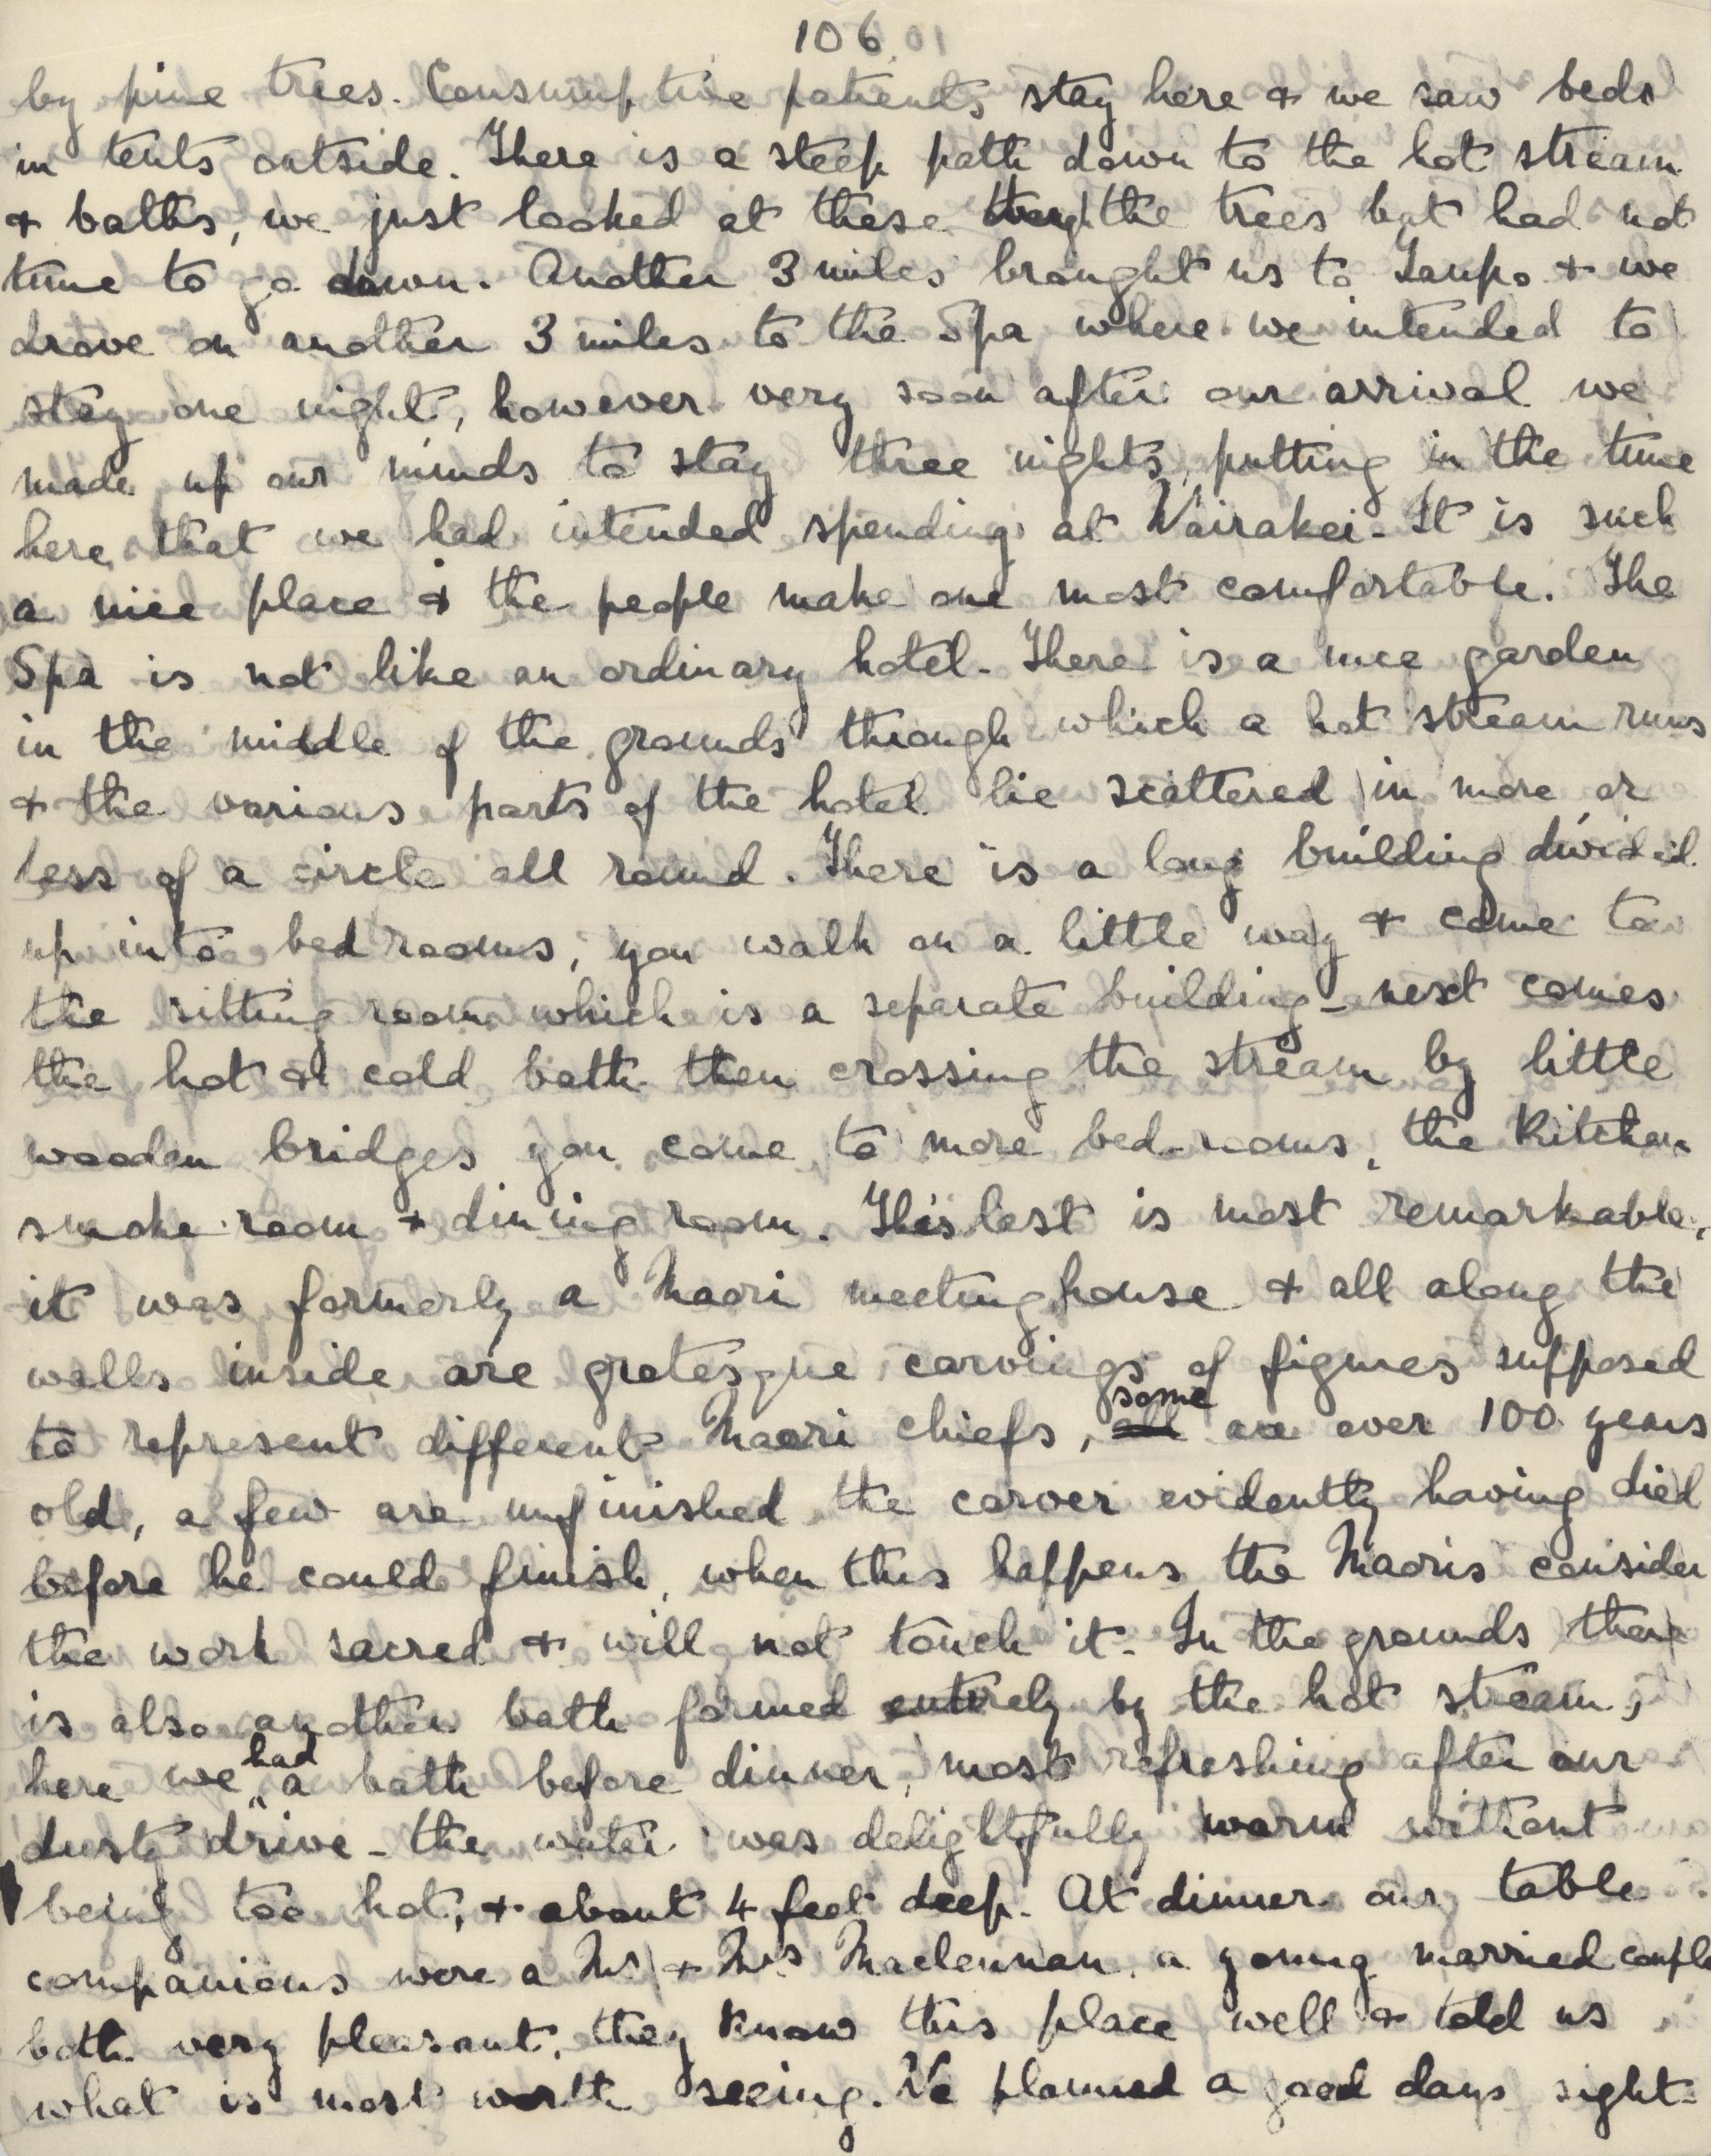 106
by pine trees. Consumptive patients stay here & we saw beds
in tents outside. There is a steep path down to the hot stream
& baths, we just looked at these thro' the trees but had not
time to go down. Another 3 miles brought us to Taupo & we
drove on another 3 miles to the Spa where we intended to
stay one night, however very soon after our arrival we
made up our minds to stay three nights, putting in the time
here that we had intended spending at Wairakei - It is such
a nice place & the people make one most comfortable. The
Spa is not like an ordinary hotel - There is a nice garden
in the middle of the grounds through which a hot stream runs
& the various parts of the hotel lie scattered in more or
less of a circle all round. There is a long building divided
up into bedrooms, you walk on a little way & come to
the sitting room which is a separate building - next comes
the hot & cold bath then crossing the stream by little
wooden bridges you come to more bed-rooms, the kitchen
smoke room & dining room. This last is most remarkable,
it was formerly a Maori meeting house & all along the
walls inside are grotesque carvings of figures supposed
to represent different Maori chiefs, all some are over 100 years
old, a few are unfinished the carver evidently having died
before he could finish, when this happens the Maoris consider
the work sacred & will not touch it - In the grounds there
is also another bath formed entirely by the hot stream,
here we had a bath before dinner, most refreshing after our
dusty drive - the water was delightfully warm without
being too hot, & about 4 feet deep - At dinner our table
companions were a Mr & Mrs Maclennan, a young married couple
both very pleasant, they know this place well & told us
what is most worth seeing. We planned a good days sight-